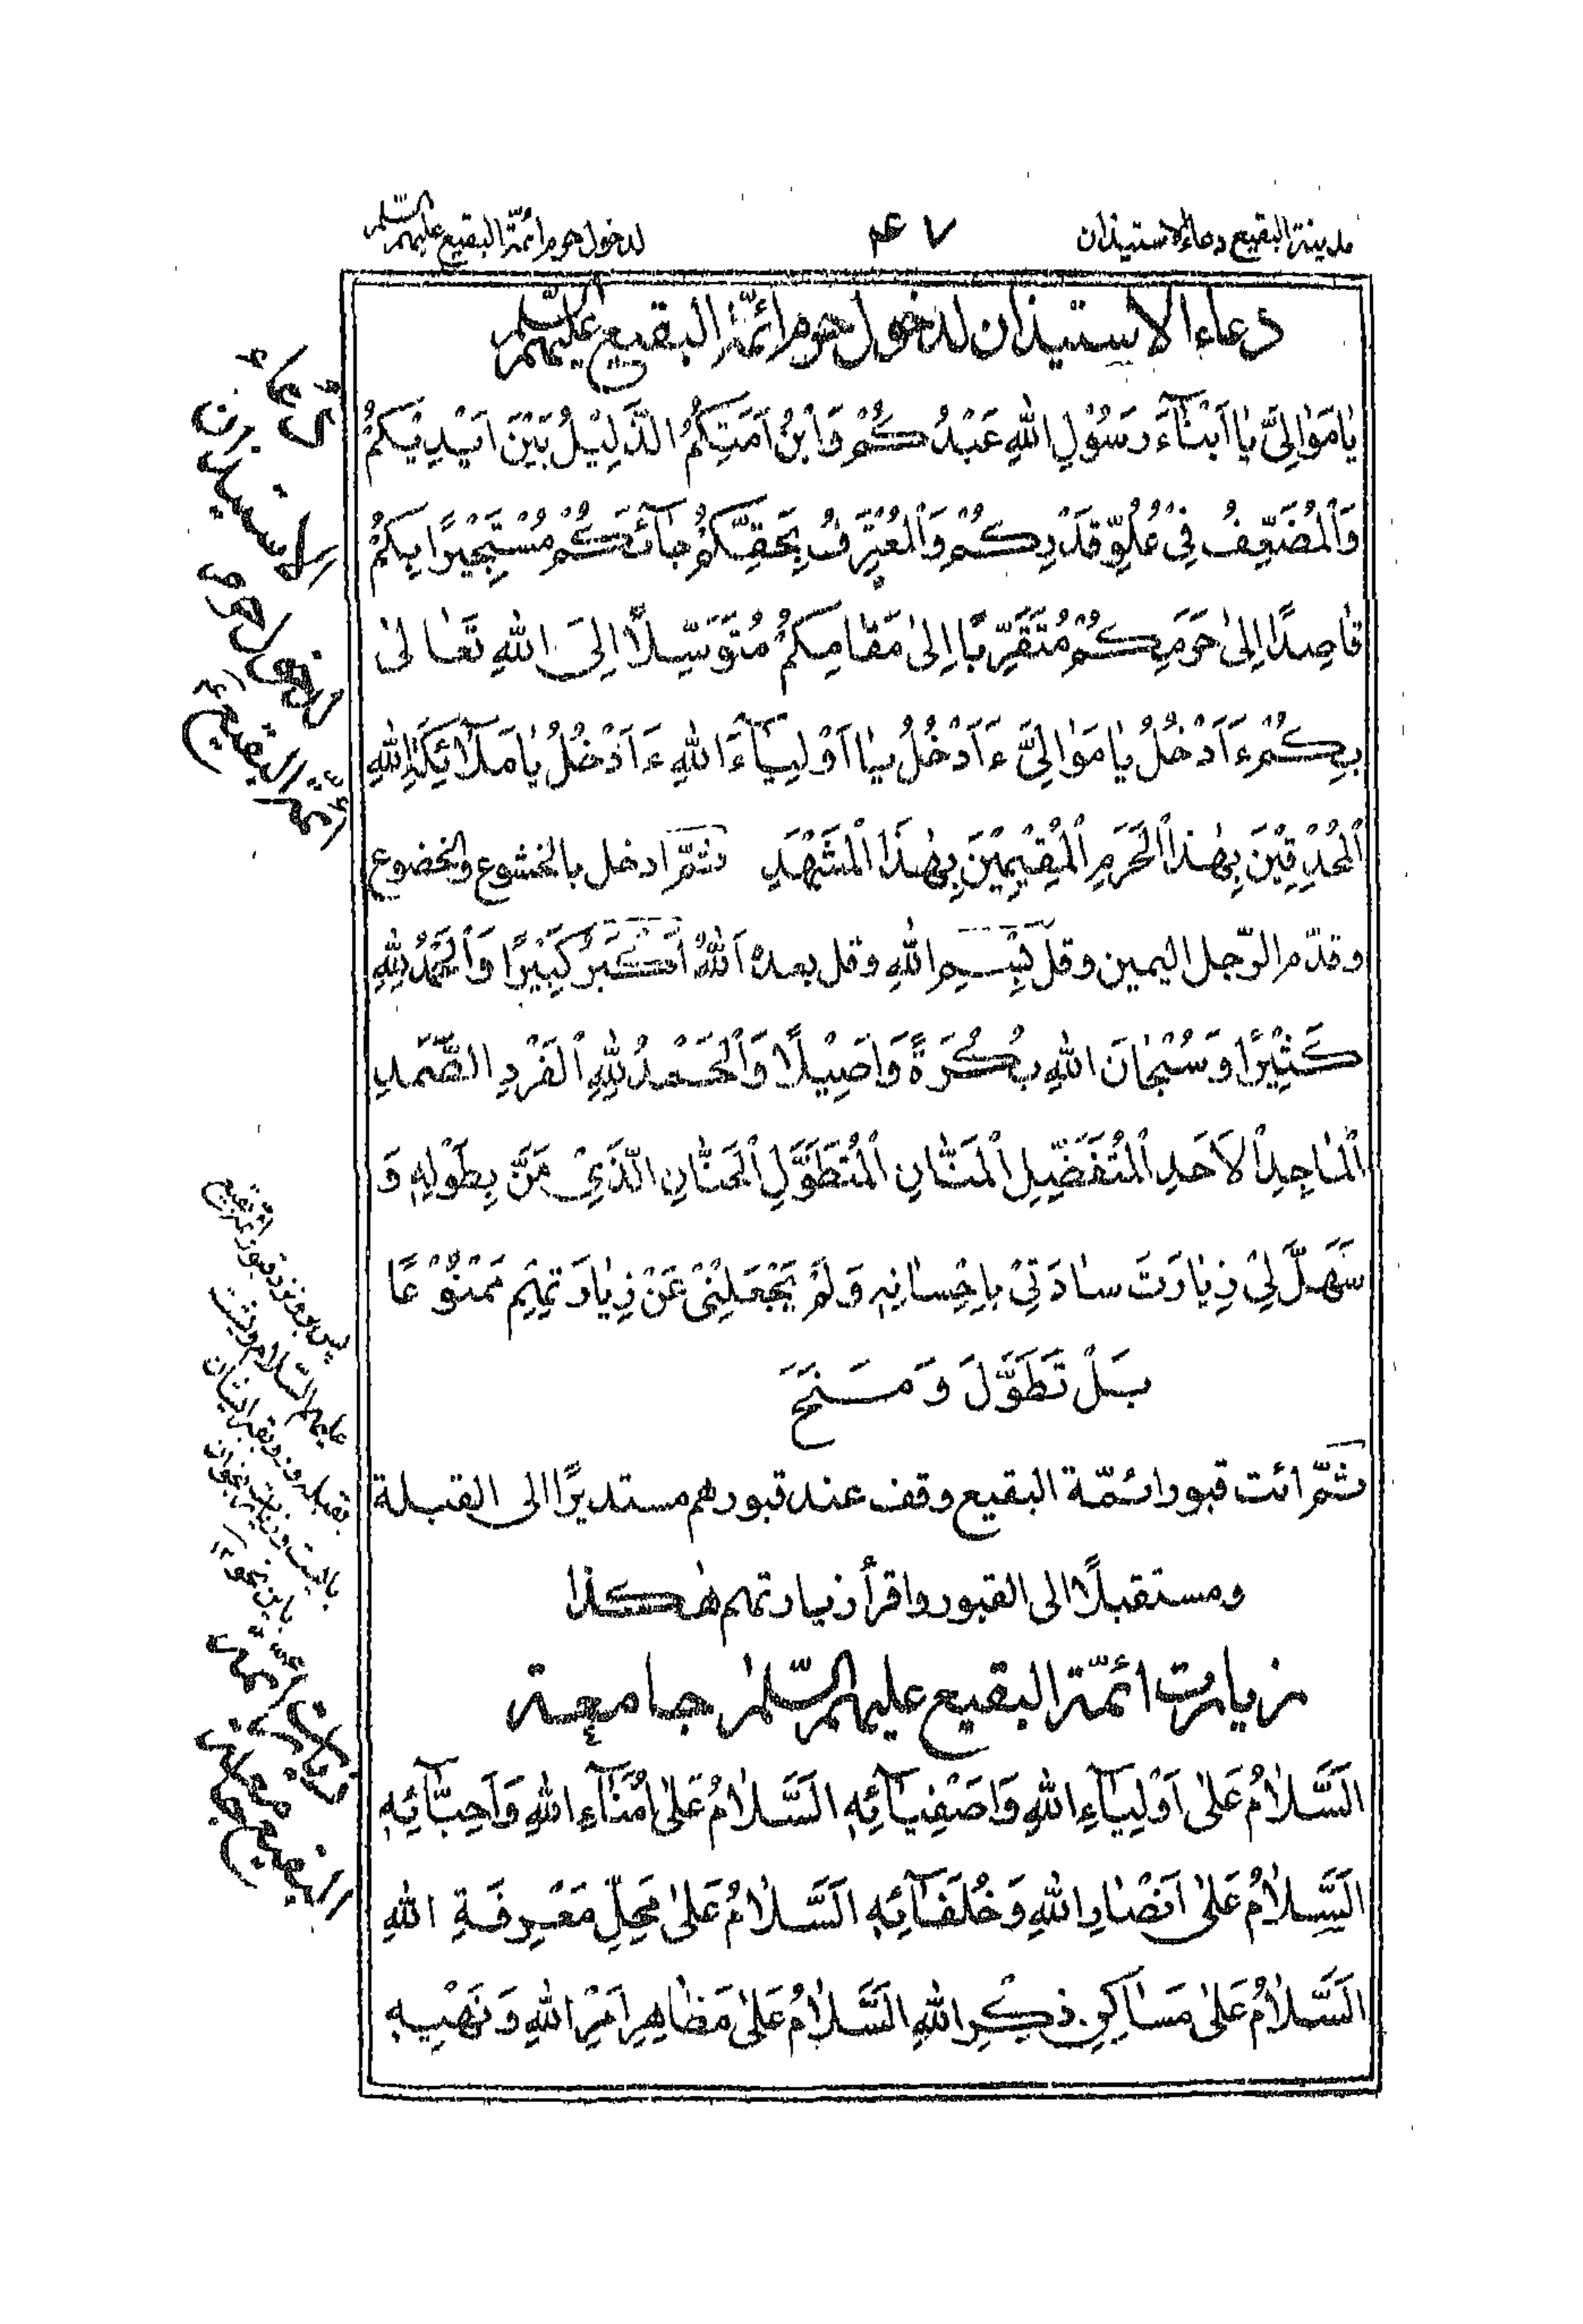 مدينة البقيع دعاء الاستيذان ۴۷ لدخول حرم ائمّة البقيع عليهم السّلام
دعاء الاستيذان لدخول حرم ائمّة البقيع عليهم السّلام
يٰا مَوٰالِيَّ يٰا اَبْنٰآءَ رَسُوْلِ اللهِ عَبْدُكُمْ وَابْنُ اَمَتِكُمُ الذَّلِيْلُ بَيْنَ اَيْدِيْكُمْ
وَالْمُضَعِّفُ فِيْ عُلُوِّ قَدْرِكُمْ وَالْمُعْتَرِفُ بِحَقِّكُمْ جٰآئَكُمْ مُسْتَجِيْرًا بِكُمْ
قٰاصِدًا اِلىٰ حَرَمِكُمْ مُتَقَرِّبًا اِلىٰ مَقٰامِكُمْ مُتَوَسِّلًا اِلَى اللهِ تَعٰالىٰ
بِكُمْ ءَاَدْخُلُ يٰا مَوٰالِيَّ ءَاَدْخُلُ يٰا اَوْلِيٰآءَ اللهِ ءَاَدْخُلُ يٰا مَلٰآئِكَةَ اللهِ
الْمُحْدِقِيْنَ بِهٰذَا الْحَرَمِ الْمُقِيْمِيْنَ بِهٰذَا الْمَشْهَدِ ثمّ ادخل بالخشوع والخضوع
وقدّم الرّجل اليمين وقل بِسْمِ اللهِ وقل بعده اَللهُ اَكْبَرُ كَبِيْرًا وَالْحَمْدُ لِلهِ
كَثِيْرًا وَسُبْحٰانَ اللهِ بُكْرَةً وَاَصِيْلًا وَالْحَمْدُ لِلهِ الْفَرْدِ الصَّمَدِ
الْمٰاجِدِ الْاَحَدِ الْمُتَفَضِّلِ الْمَنّٰانِ الْمُتَطَوِّلِ الْحَنّٰانِ الَّذِيْ مَنَّ بِطَوْلِهٖ وَ
سَهَّلَ لِيْ زِيٰارَتَ سٰادَتِيْ بِاِحْسٰانِهٖ وَلَمْ يَجْعَلْنِيْ عَنْ زِيٰارَتِهِمْ مَمْنُوْعًا
بَلْ تَطَوَّلَ وَمَنَحَ
ثمّ ائت قبور ائمّة البقيع وقف عند قبورهم مستدبرًا الى القبلة
ومستقبلًا الى القبور واقرأ زيارتهم هٰكذا
زيارت ائمّة البقيع عليهم السّلام جامعة
اَلسَّلٰامُ عَلىٰ اَوْلِيٰآءِ اللهِ وَاَصْفِيٰآئِهٖ اَلسَّلٰامُ عَلىٰ اُمَنٰآءِ اللهِ وَاَحِبّٰآئِهٖ
اَلسَّلٰامُ عَلىٰ اَنْصٰارِ اللهِ وَخُلَفٰآئِهٖ اَلسَّلٰامُ عَلىٰ مَحٰلِّ مَعْرِفَةِ اللهِ
اَلسَّلٰامُ عَلىٰ مَسٰاكِنِ ذِكْرِ اللهِ اَلسَّلٰامُ عَلىٰ مَظٰاهِرِ اَمْرِ اللهِ وَنَهْيِهٖ
ائمّة البقيع
عليهم السّلام